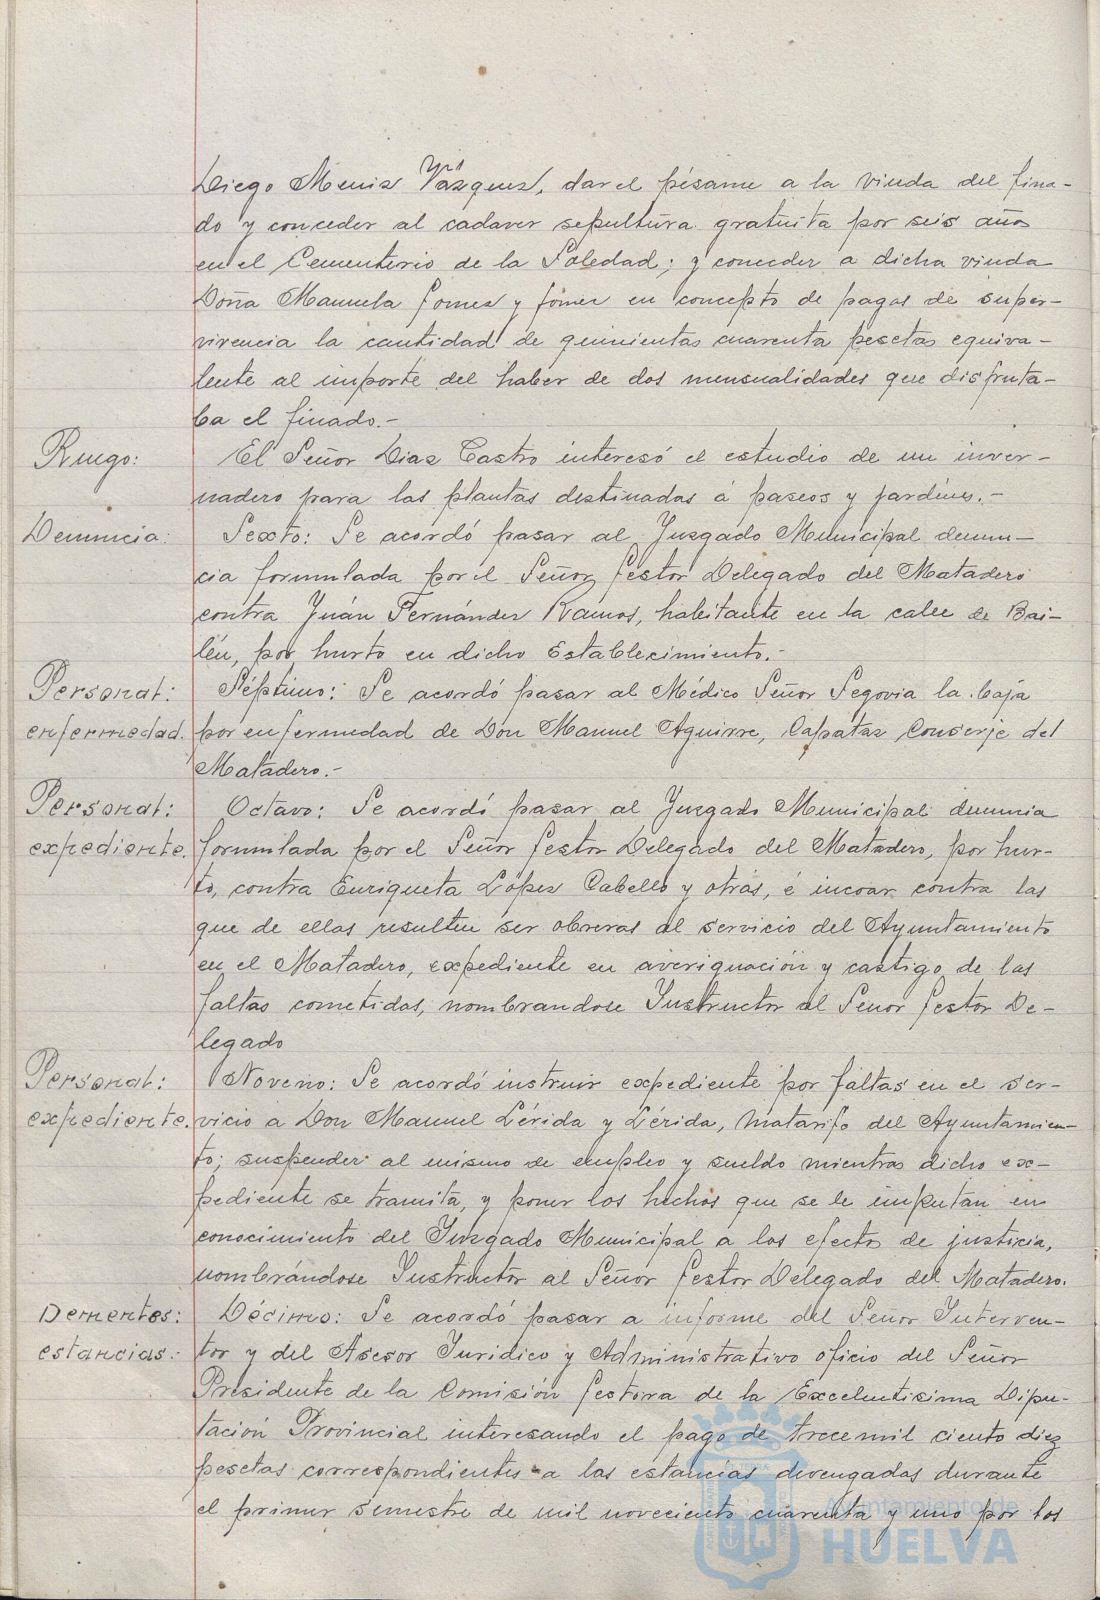 Diego Meniz Vázquez, dar el pésame a la viuda del fina-
do y conceder al cadaver sepultura gratuita por seis años
en el Cementerio de la Soledad; y conceder a dicha viuda
Doña Manuela Gomez y Gómez en concepto de pagas de super-
vivencia la cantidad de quinientas cuarenta pesetas equiva-
lente al importe del haber de dos mensualidades que disfruta-
ba el finado.-
Ruego:
El Señor Diaz Castro interesó el estudio de un inver-
nadero para las plantas destinadas á paseos y jardines.-
Denuncia:
Sexto: Se acordó pasar al Juzgado Municipal denun-
cia formulada por el Señor Gestor Delegado del Matadero
contra Juán Fernández Ramos, habitante en la calle de Bai-
lén, por hurto en dicho Establecimiento.-
Personal:
enfermedad.
Séptimo: Se acordó pasar al Médico Señor Segovia la baja
por enfermedad de Don Manuel Aguirre, Capataz Conserje del
Matadero.-
Personal:
expediente.
Octavo: Se acordó pasar al Juzgado Municipal denuncia
formulada por el Señor Gestor Delegado del Matadero, por hur-
to, contra Enriqueta López Cabello y otras, é incoar contra las
que de ellas resulten ser obreras al servicio del Ayuntamiento
en el Matadero, expediente en averiguación y castigo de las
faltas cometidas, nombrandose Instructor al Señor Gestor De-
legado
Personal:
expediente.
Noveno: Se acordó instruir expediente por faltas en el ser-
vicio a Don Manuel Lérida y Lérida, matarife del Ayuntamien-
to; suspender al mismo de empleo y sueldo mientras dicho ex-
pediente se tramita, y poner los hechos que se le imputan en
conocimiento del Juzgado Municipal a los efectos de justicia,
nombrándose Instructor al Señor Gestor Delegado del Matadero.
Dementes:
estancias:-
Décimo: Se acordó pasar a informe del Señor Interven-
tor y del Asesor Juridico y Administrativo oficio del Señor
Presidente de la Comisión Gestora de la Excelentisima Dipu-
tación Provincial interesando el pago de trece mil ciento diez
pesetas correspondientes a las estancias devengadas durante
el primer semestre de mil novecientos cuarenta y uno por los
Ayuntamiento de
HUELVA